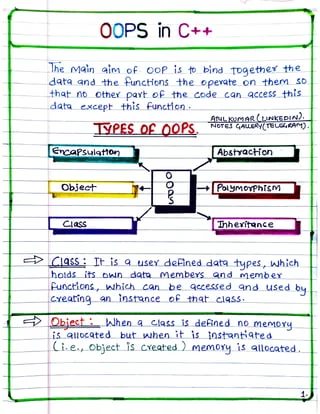 OOPS in C++
The Main aim of OOP is to bind together the
data and the functions the operate on them so
that no other part of the code can access this
data except this function.
ANILKUMAR (LINKEDIN).
NOTES GALLERY (TELEGRAM).
TYPES OF OOPS.
Encapsulation
Abstraction
Object
OOPS
Polymorphism
Class
Inheritance
⇒ Class : It is a user defined data types, which
holds its own data members and member
functions, which can be accessed and used by
creating an instance of that class.
⇒ Object : When a class is defined no memory
is allocated but when it is instantiated
(i.e., object is created) memory is allocated.
1.